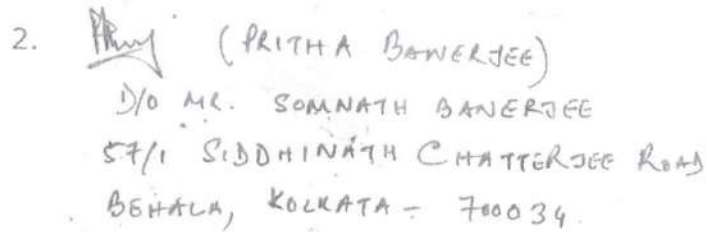 2. (PRITHA BANERJEE)
D/O MR. SOMNATH BANERJEE
57/1 SIDDHINATH CHATTERJEE ROAD
BEHALA, KOLKATA - 700034.